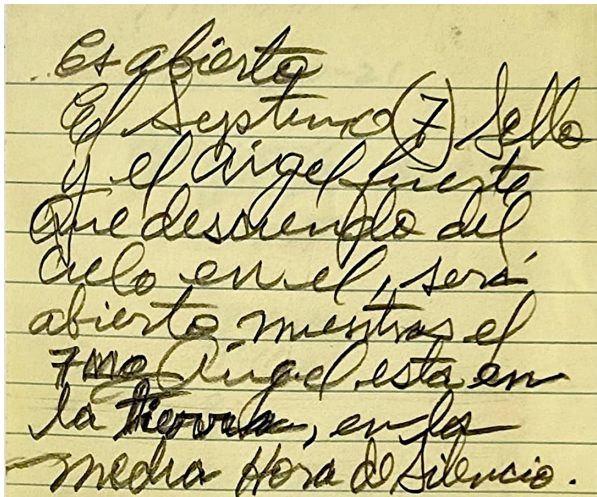 Es abierto
El Septimo (7) Sello
y el Ángel fuerte
que desciendo del
cielo en el, será
abierto mientras el
7mo Ángel esta en
la tierra, en la
media Hora de Silencio.